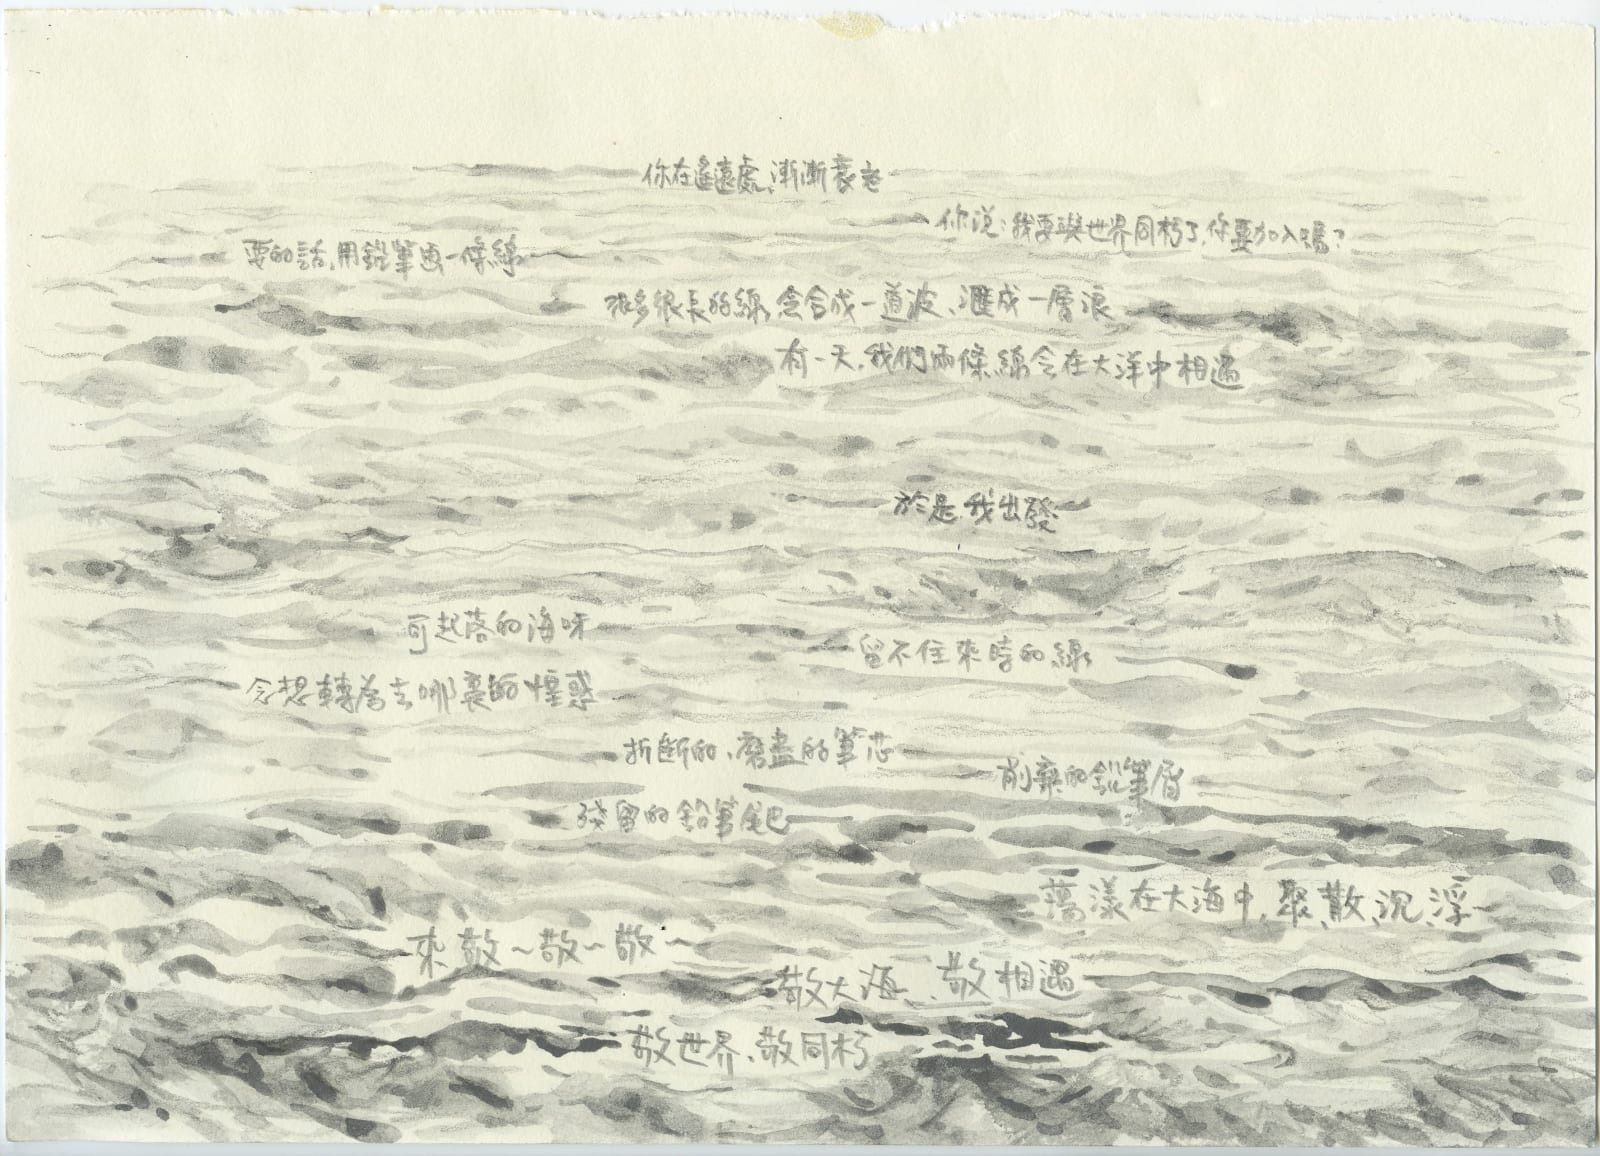 你在遙遠處、漸漸衰老
你說：我要與世界同朽了，你要加入嗎？
要的話，用鉛筆画一條線
很多很長的線，會合成一道波、匯成一層浪
有一天，我們兩條線會在大洋中相遇
於是，我出發
可起落的海呀
留不住來時的線
念想轉為去哪裏的惶惑
折斷的、磨盡的筆芯
削棄的鉛筆屑
殘留的鉛筆𨧀
蕩漾在大海中，聚、散、沉、浮
來，敬～敬～敬～
敬大海、敬相遇
敬世界、敬同朽